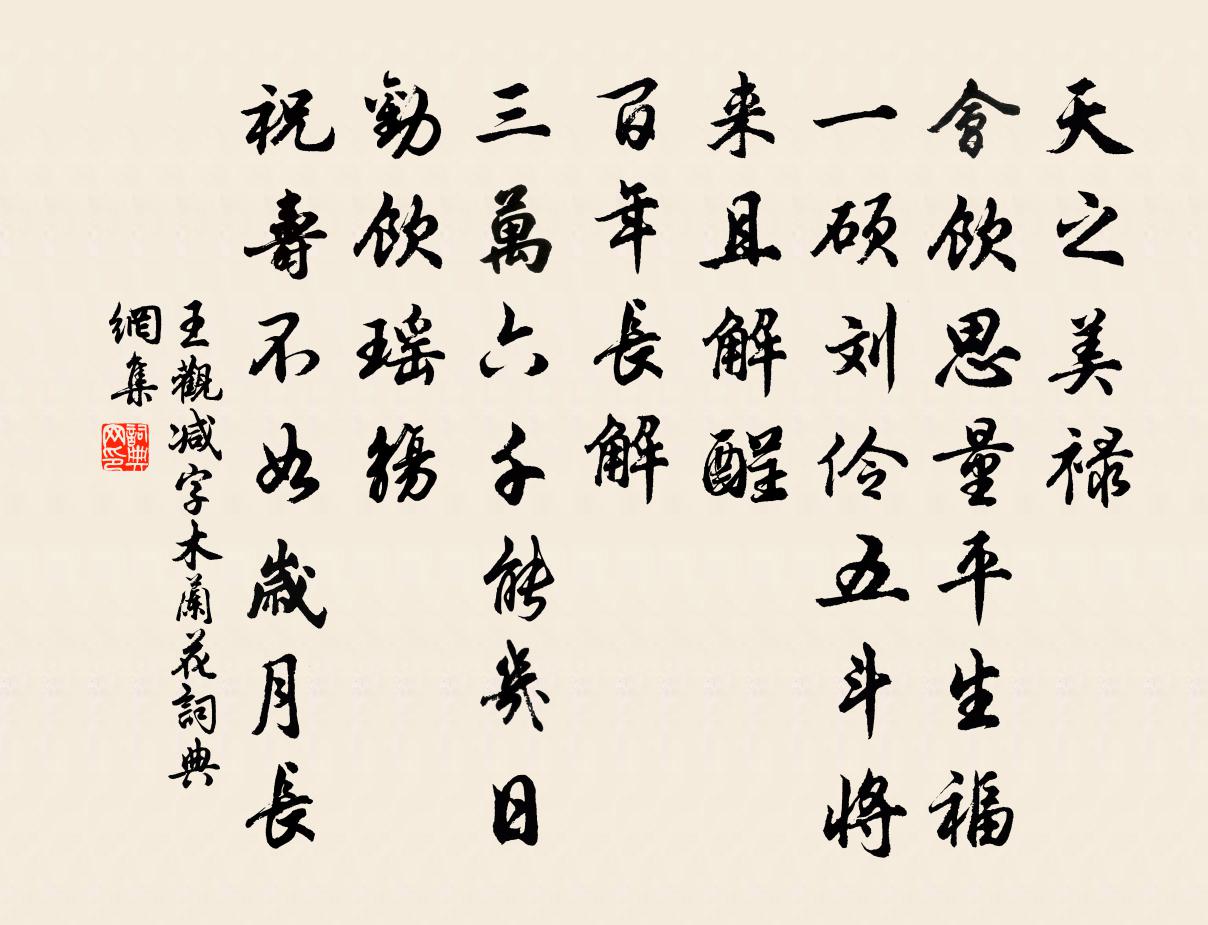 天之美禄
會飲思量平生福
一硕刘伶五斗将
来且解酲
百年長解
三萬六千能幾日
勸飲瑶觴
祝壽不如歲月長
王觀减字木蘭花詞典
網集
詞典网印